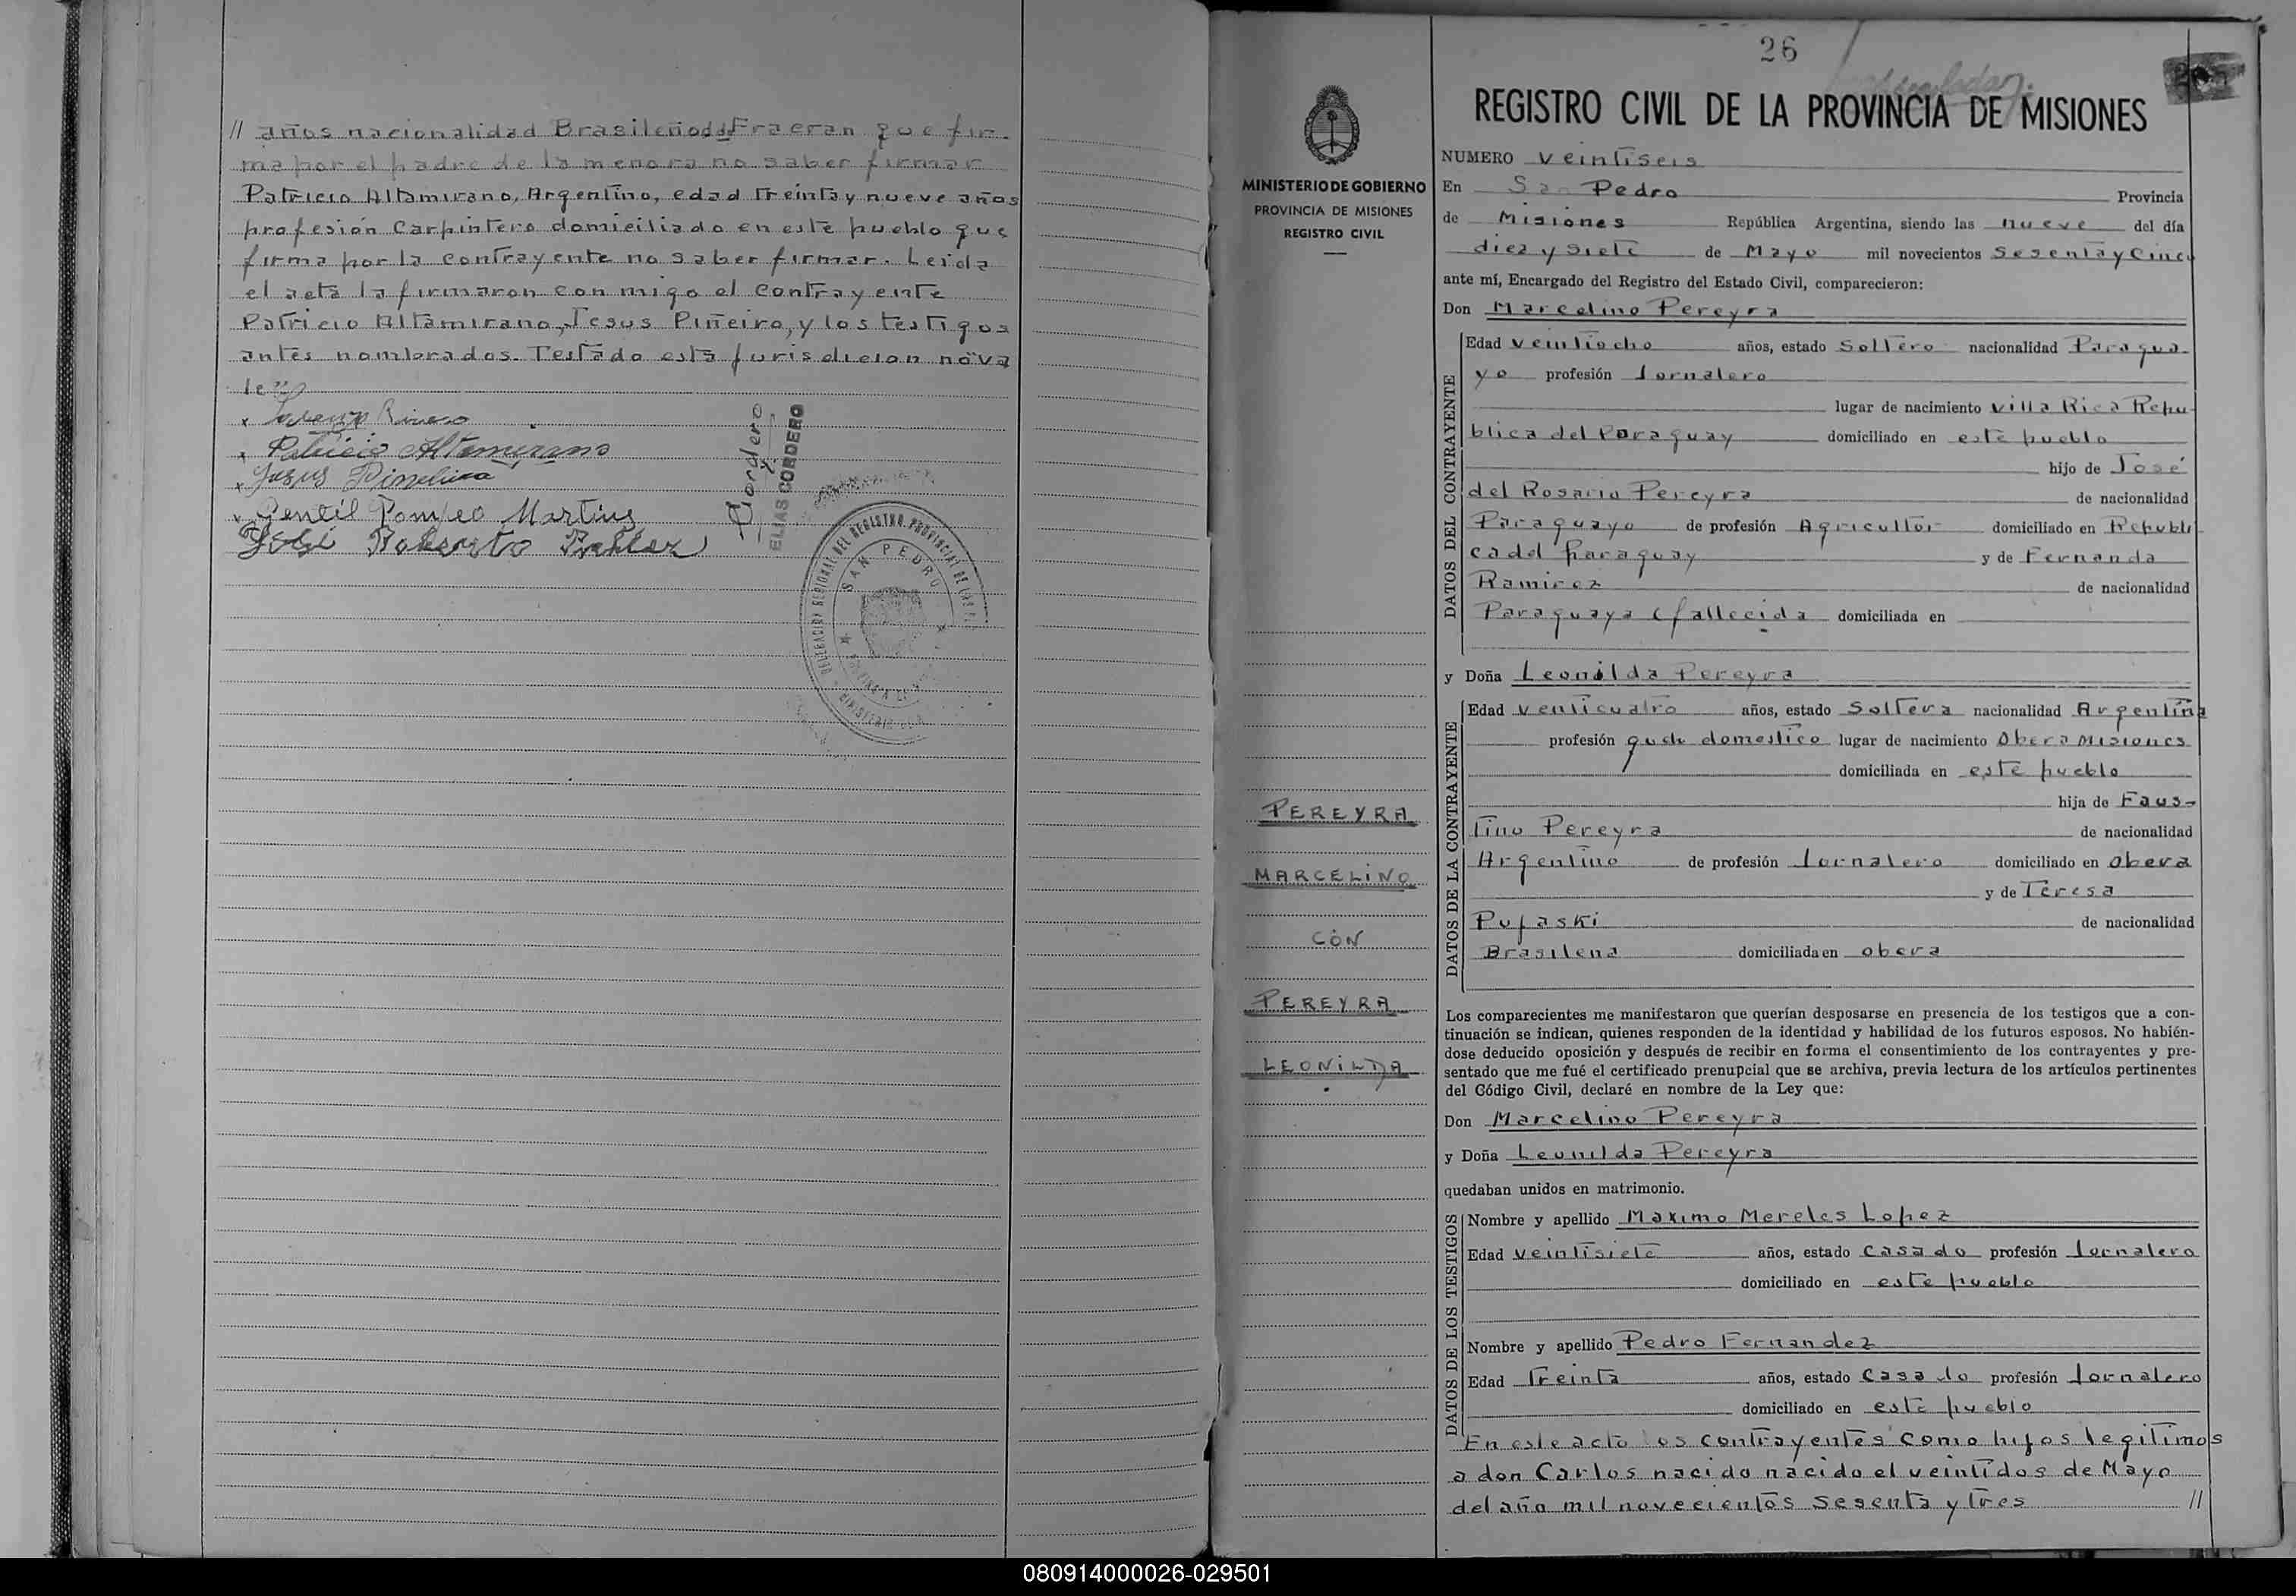 // años nacionalidad Brasileño Fracran que fir-
ma por el padre de la menora no saber firmar
Patricio Altamirano, Argentino, edad treinta y nueve años
profesión Carpintero domiciliado en este pueblo que
firma por la contrayente no saber firmar. Leida
el acta la firmaron con migo el contrayente
Patricio Altamirano, Jesus Piñeiro, y los testigos
antes nombrados. Testado esta jurisdicion no va
le"
Patricio Altamirano
Jesus
Gentil Pompeo Martins
José Roberto
Cordero
ELIAS CORDERO
DELEGACION REGIONAL DEL REGISTRO PROVINCIAL DE LAS
SAN PEDRO
26
MINISTERIO DE GOBIERNO
PROVINCIA DE MISIONES
REGISTRO CIVIL
PEREYRA
MARCELINO
CON
PEREYRA
LEONILDA
REGISTRO CIVIL DE LA PROVINCIA DE MISIONES
NUMERO veintiseis
En San Pedro Provincia
de Misiones República Argentina, siendo las nueve del día
diez y siete de Mayo mil novecientos Sesenta y Cinco
ante mí, Encargado del Registro del Estado Civil, comparecieron:
Don Marcelino Pereyra
DATOS DEL CONTRAYENTE
Edad veintiocho años, estado Soltero nacionalidad Paragua-
yo profesión Jornalero
lugar de nacimiento Villa Rica Repu-
blica del Paraguay domiciliado en este pueblo
hijo de José
del Rosario Pereyra de nacionalidad
Paraguayo de profesión Agricultor domiciliado en Republi-
ca del paraguay y de Fernanda
Ramirez de nacionalidad
Paraguaya (fallecida domiciliada en
y Doña Leonilda Pereyra
DATOS DE LA CONTRAYENTE
Edad venticuatro años, estado Soltera nacionalidad Argentina
profesión queh domestico lugar de nacimiento Obera Misiones
domiciliada en este pueblo
hija de Faus-
tino Pereyra de nacionalidad
Argentino de profesión Jornalero domiciliado en obera
y de Teresa
Pujaski de nacionalidad
Brasilena domiciliada en obera
Los comparecientes me manifestaron que querían desposarse en presencia de los testigos que a con-
tinuación se indican, quienes responden de la identidad y habilidad de los futuros esposos. No habién-
dose deducido oposición y después de recibir en forma el consentimiento de los contrayentes y pre-
sentado que me fué el certificado prenupcial que se archiva, previa lectura de los artículos pertinentes
del Código Civil, declaré en nombre de la Ley que:
Don Marcelino Pereyra
y Doña Leonilda Pereyra
quedaban unidos en matrimonio.
DATOS DE LOS TESTIGOS
Nombre y apellido Maximo Mereles Lopez
Edad veintisiete años, estado Casado profesión Jornalero
domiciliado en este pueblo
Nombre y apellido Pedro Fernandez
Edad Treinta años, estado Casado profesión Jornalero
domiciliado en este pueblo
En este acto los contrayentes como hijos legitimos
a don Carlos nacido nacido el veintidos de Mayo
del año mil novecientos Sesenta y tres //
080914000026-029501